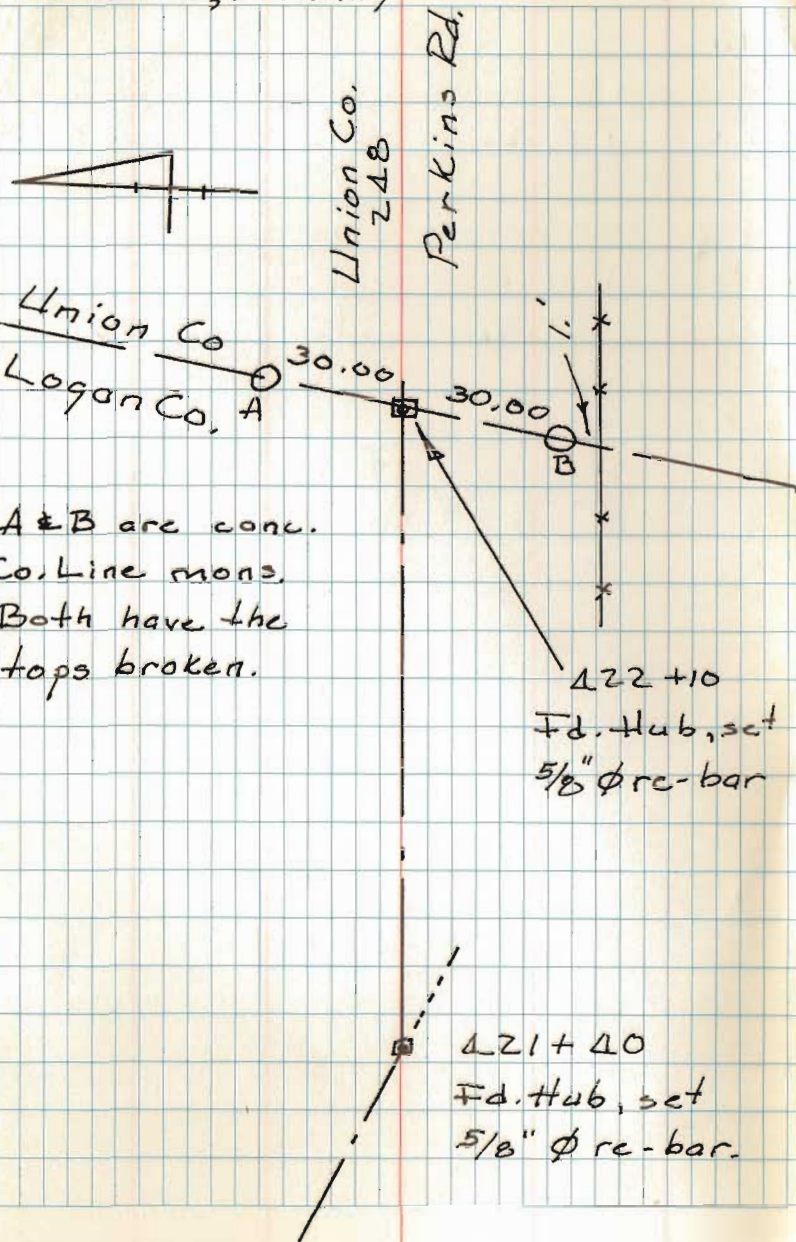 Union Co.
248
Perkins Rd.
Union Co
Logan Co.
A
30.00
30.00
B
1.'
A & B are conc.
Co. Line mons.
Both have the
tops broken.
422 +10
Fd. Hub, set
5/8" Ø re-bar
421 + 40
Fd. Hub, set
5/8" Ø re-bar.